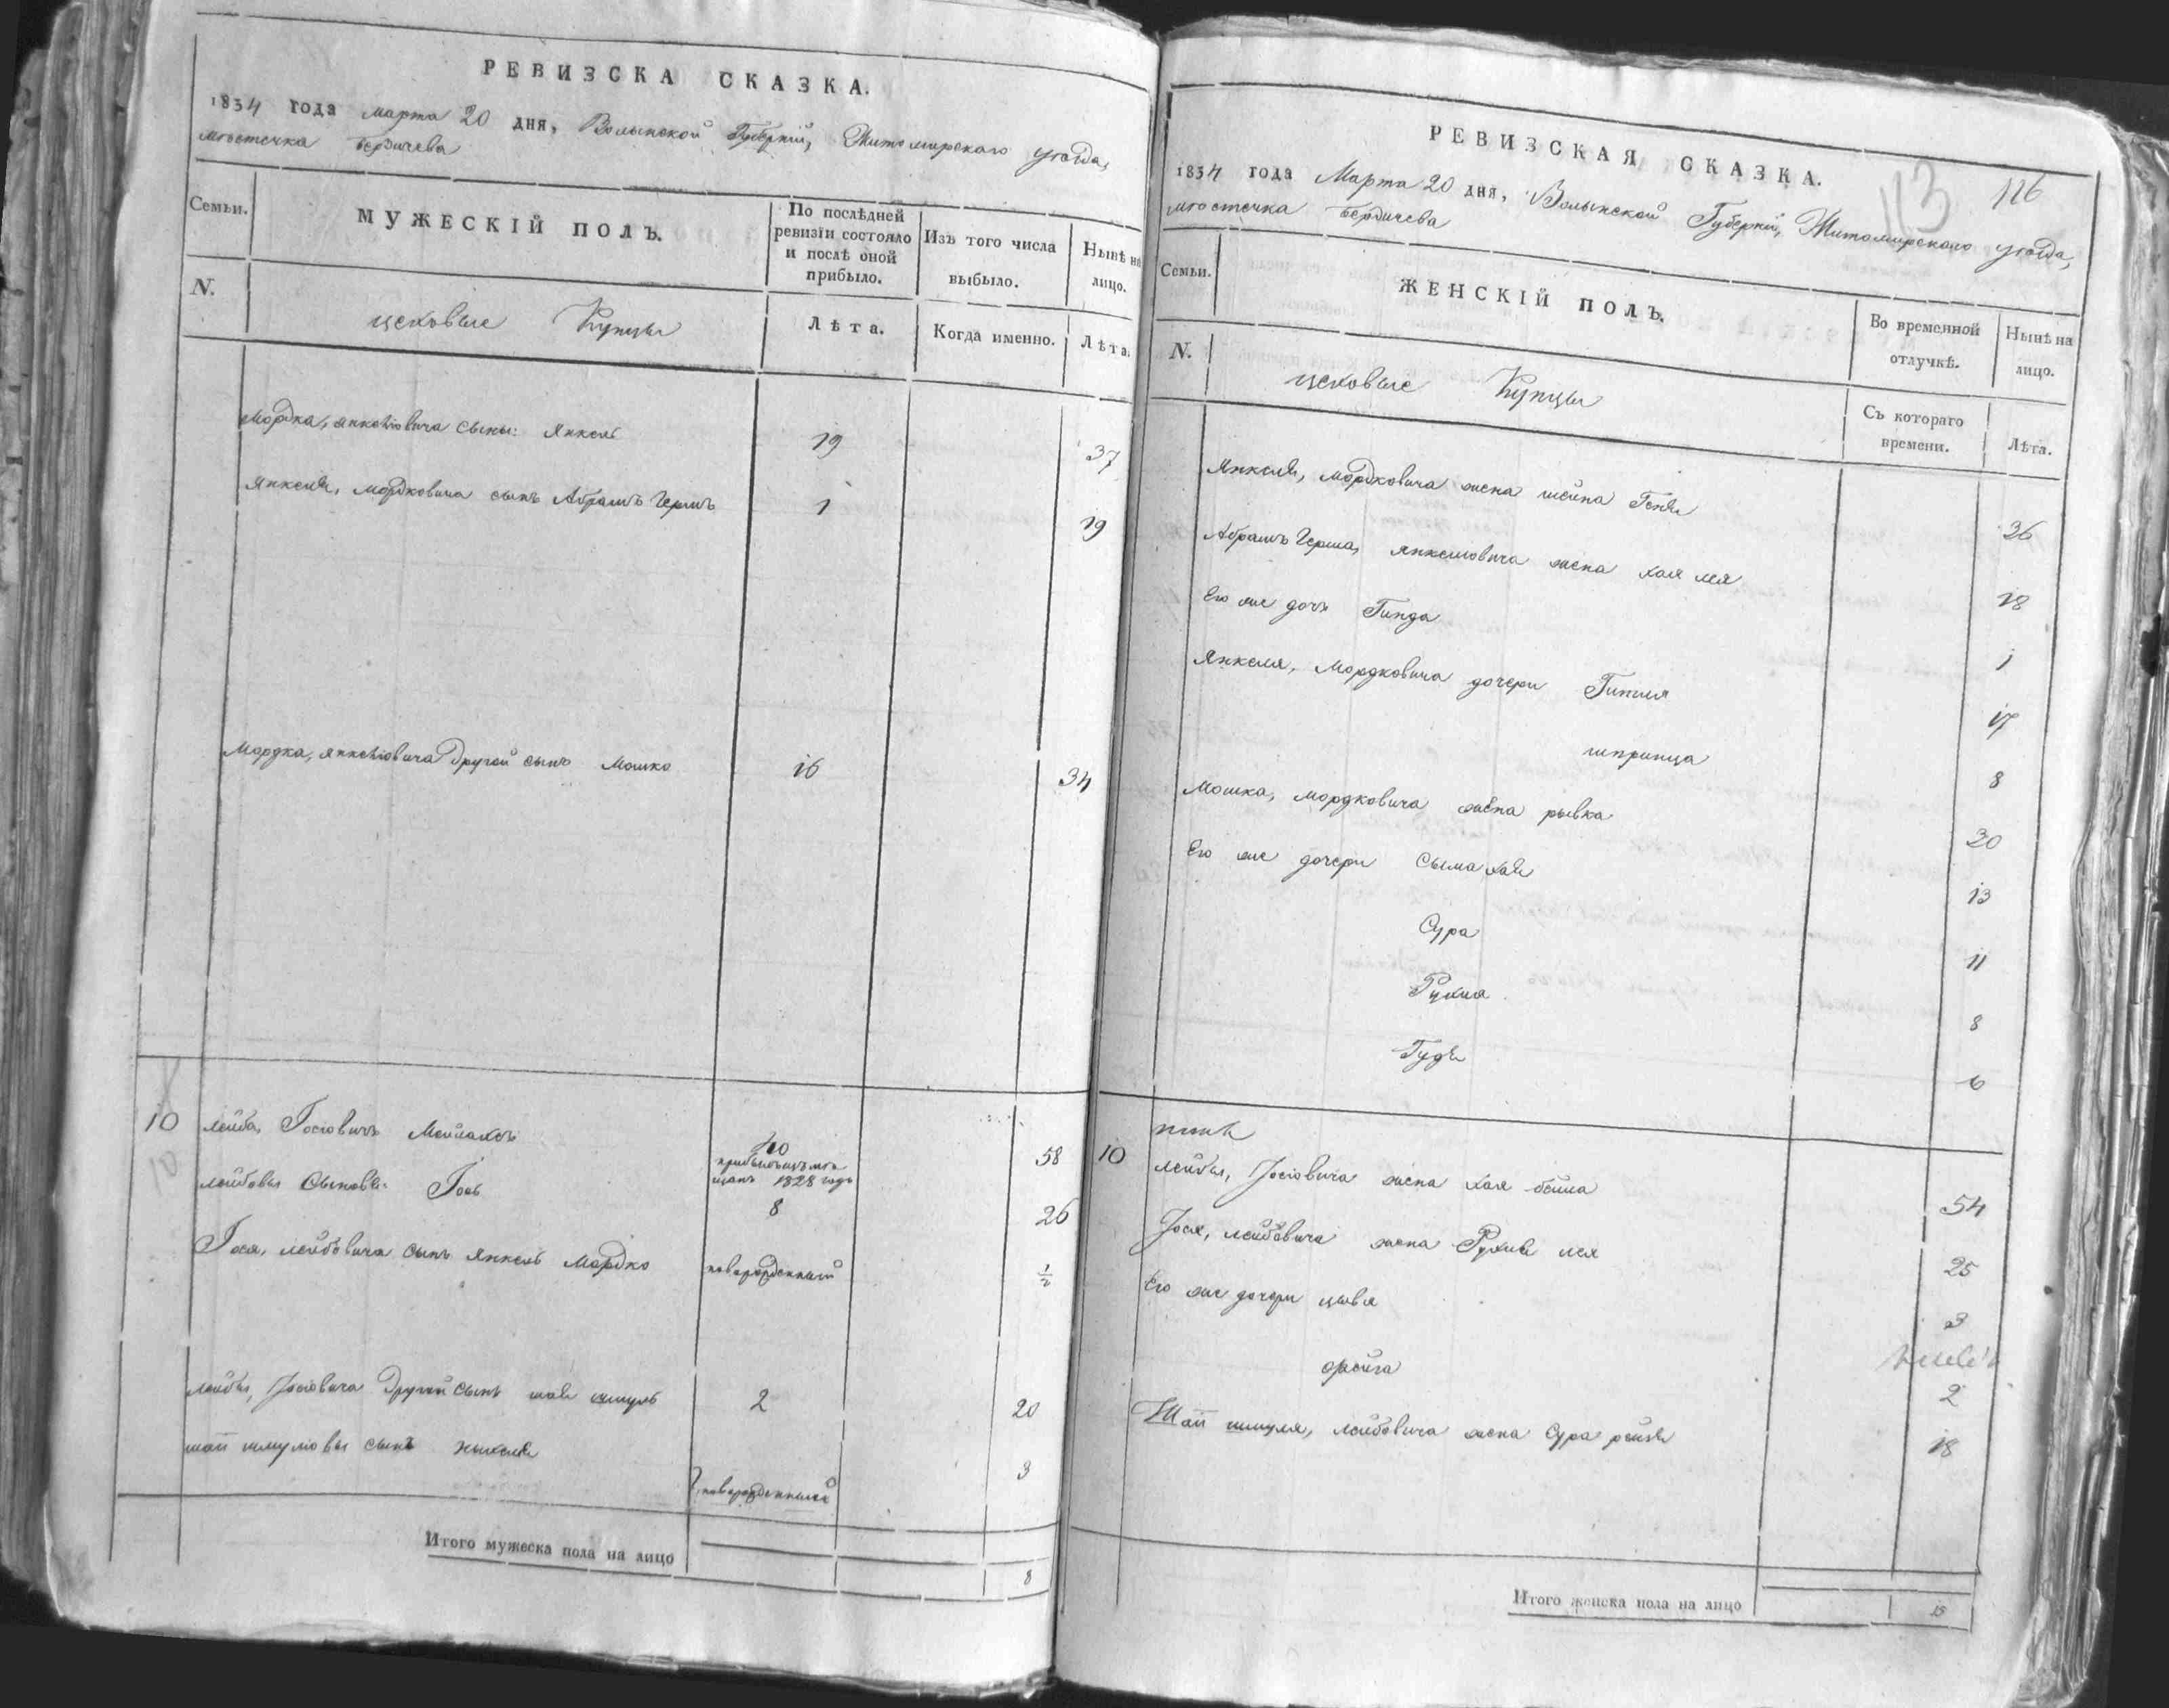 РЕВИЗСКА СКАЗКА.
1834 года марта 20 дня, Волынской Губернїи, Житомирскаго уѣзда,
мѣстечка Бердичева
Семьи.
МУЖЕСКІЙ ПОЛЪ.
По послѣдней
ревизіи состояло
и послѣ оной
прибыло.
Изъ того числа
выбыло.
Нынѣ на
лицо.
N.
цеховые Купцы
Лѣта.
Когда именно.
Лѣта.
Мордка, Янкелiовича сыны: Янкель 19 37
Янкеля, Мордковича сынъ Абрамъ Гершъ 1 19
Мордка, Янкелiовича другой сынъ Мошко 16 34
10 Лейба, Іосiовичъ 40 58
1828 года
Лейбовы Сыновья: Іось 8 26
Іося, Лейбовича сынъ Янкель Мордко новорожденный ½
Лейбы, Іосiовича другой сынъ Шмуль 2 20
сынъ новорожденный 3
Итого мужеска пола на лицо 8
РЕВИЗСКАЯ СКАЗКА.
113 116
1834 года Марта 20 дня, Волынской Губернїи, Житомирскаго уѣзда,
мѣстечка Бердичева
Семьи.
ЖЕНСКІЙ ПОЛЪ.
Во временной
отлучкѣ.
Нынѣ на
лицо.
N.
цеховые Купцы
Съ котораго
времени.
Лѣта.
Янкеля, Мордковича жена Шейна Геня 36
Абрамъ Герша, Янкелiовича жена Хая Лея 18
Его же дочь Гинда 1
Янкеля, Мордковича дочери 17
Шпринца 8
Мошка, Мордковича жена Рывка 30
Его же дочери Сыма Хая 13
Сура 11
Рухля 8
Гудя 6
10 Лейбы, Іосiовича жена Хая Бейла 54
Іося, Лейбовича жена Рухля Лея 25
Его же дочери Цывя 3
Фрейга 2
Шмуля, Лейбовича жена Сура Рейзя 18
Итого женска пола на лицо 15